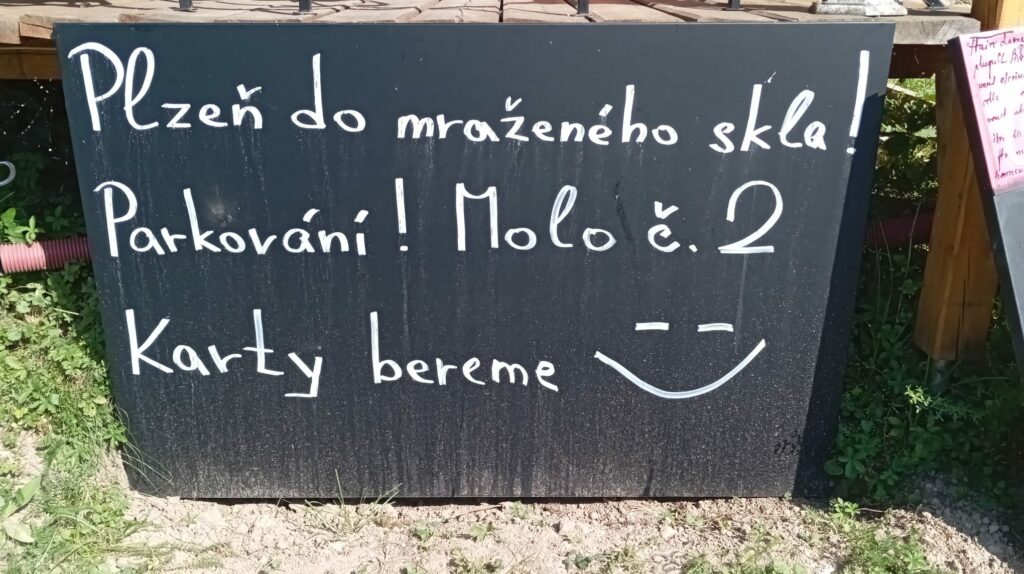 Plzeň do mraženého skla!
Parkování! Molo č. 2
Karty bereme